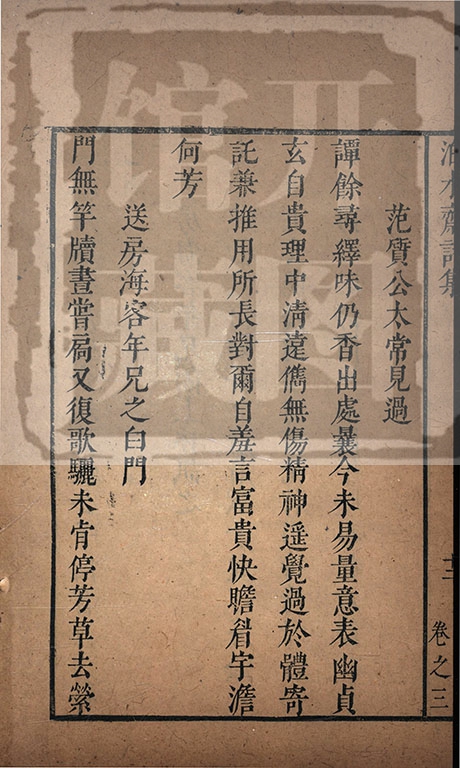 泊水齋詩集
卷之三
范質公太常見過
譚餘尋繹味仍香出處曩今未易量意表幽貞
玄自貴理中淸遠儁無傷精神遥覺過於體寄
託兼推用所長對爾自羞言富貴快瞻眉宇澹
何芳
送房海客年兄之白門
門無竿牘晝嘗扃又復歌驪未肯停芳草去縈
开图
馆藏